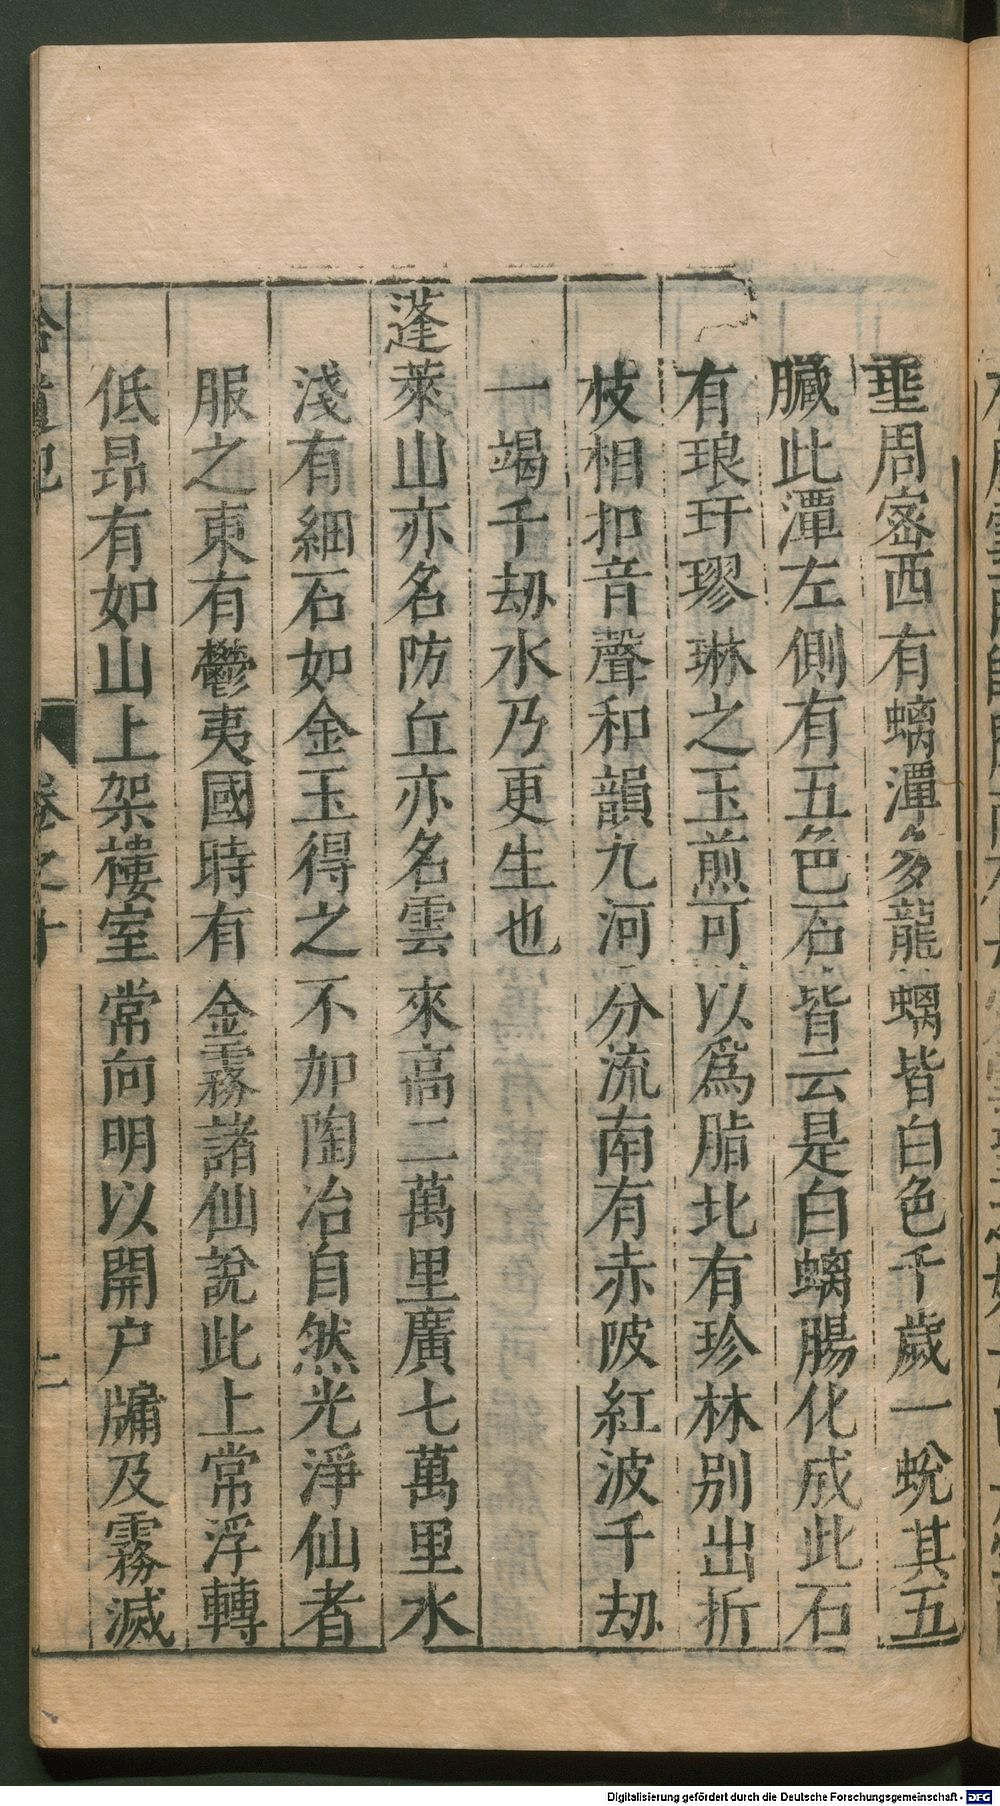 埀周宻西有螭潭多龍螭皆白色千歲一蛻其五
臟此潭左側有五色石皆云是白螭腸化成此石
有琅玕璆琳之玉煎可以爲脂北有珍林别出折
枝相扣音聲和韻九河分流南有赤陂紅波千劫
一竭千劫水乃更生也
蓬萊山亦名防丘亦名雲來高二萬里廣七萬里水
淺有細石如金玉得之不加陶冶自然光淨仙者
服之東有鬱夷國時有金霧諸仙說此上常浮轉
低昂有如山上架樓室常向明以開户牖及霧滅
拾遺記 卷之十
Digitalisierung gefördert durch die Deutsche Forschungsgemeinschaft - DFG